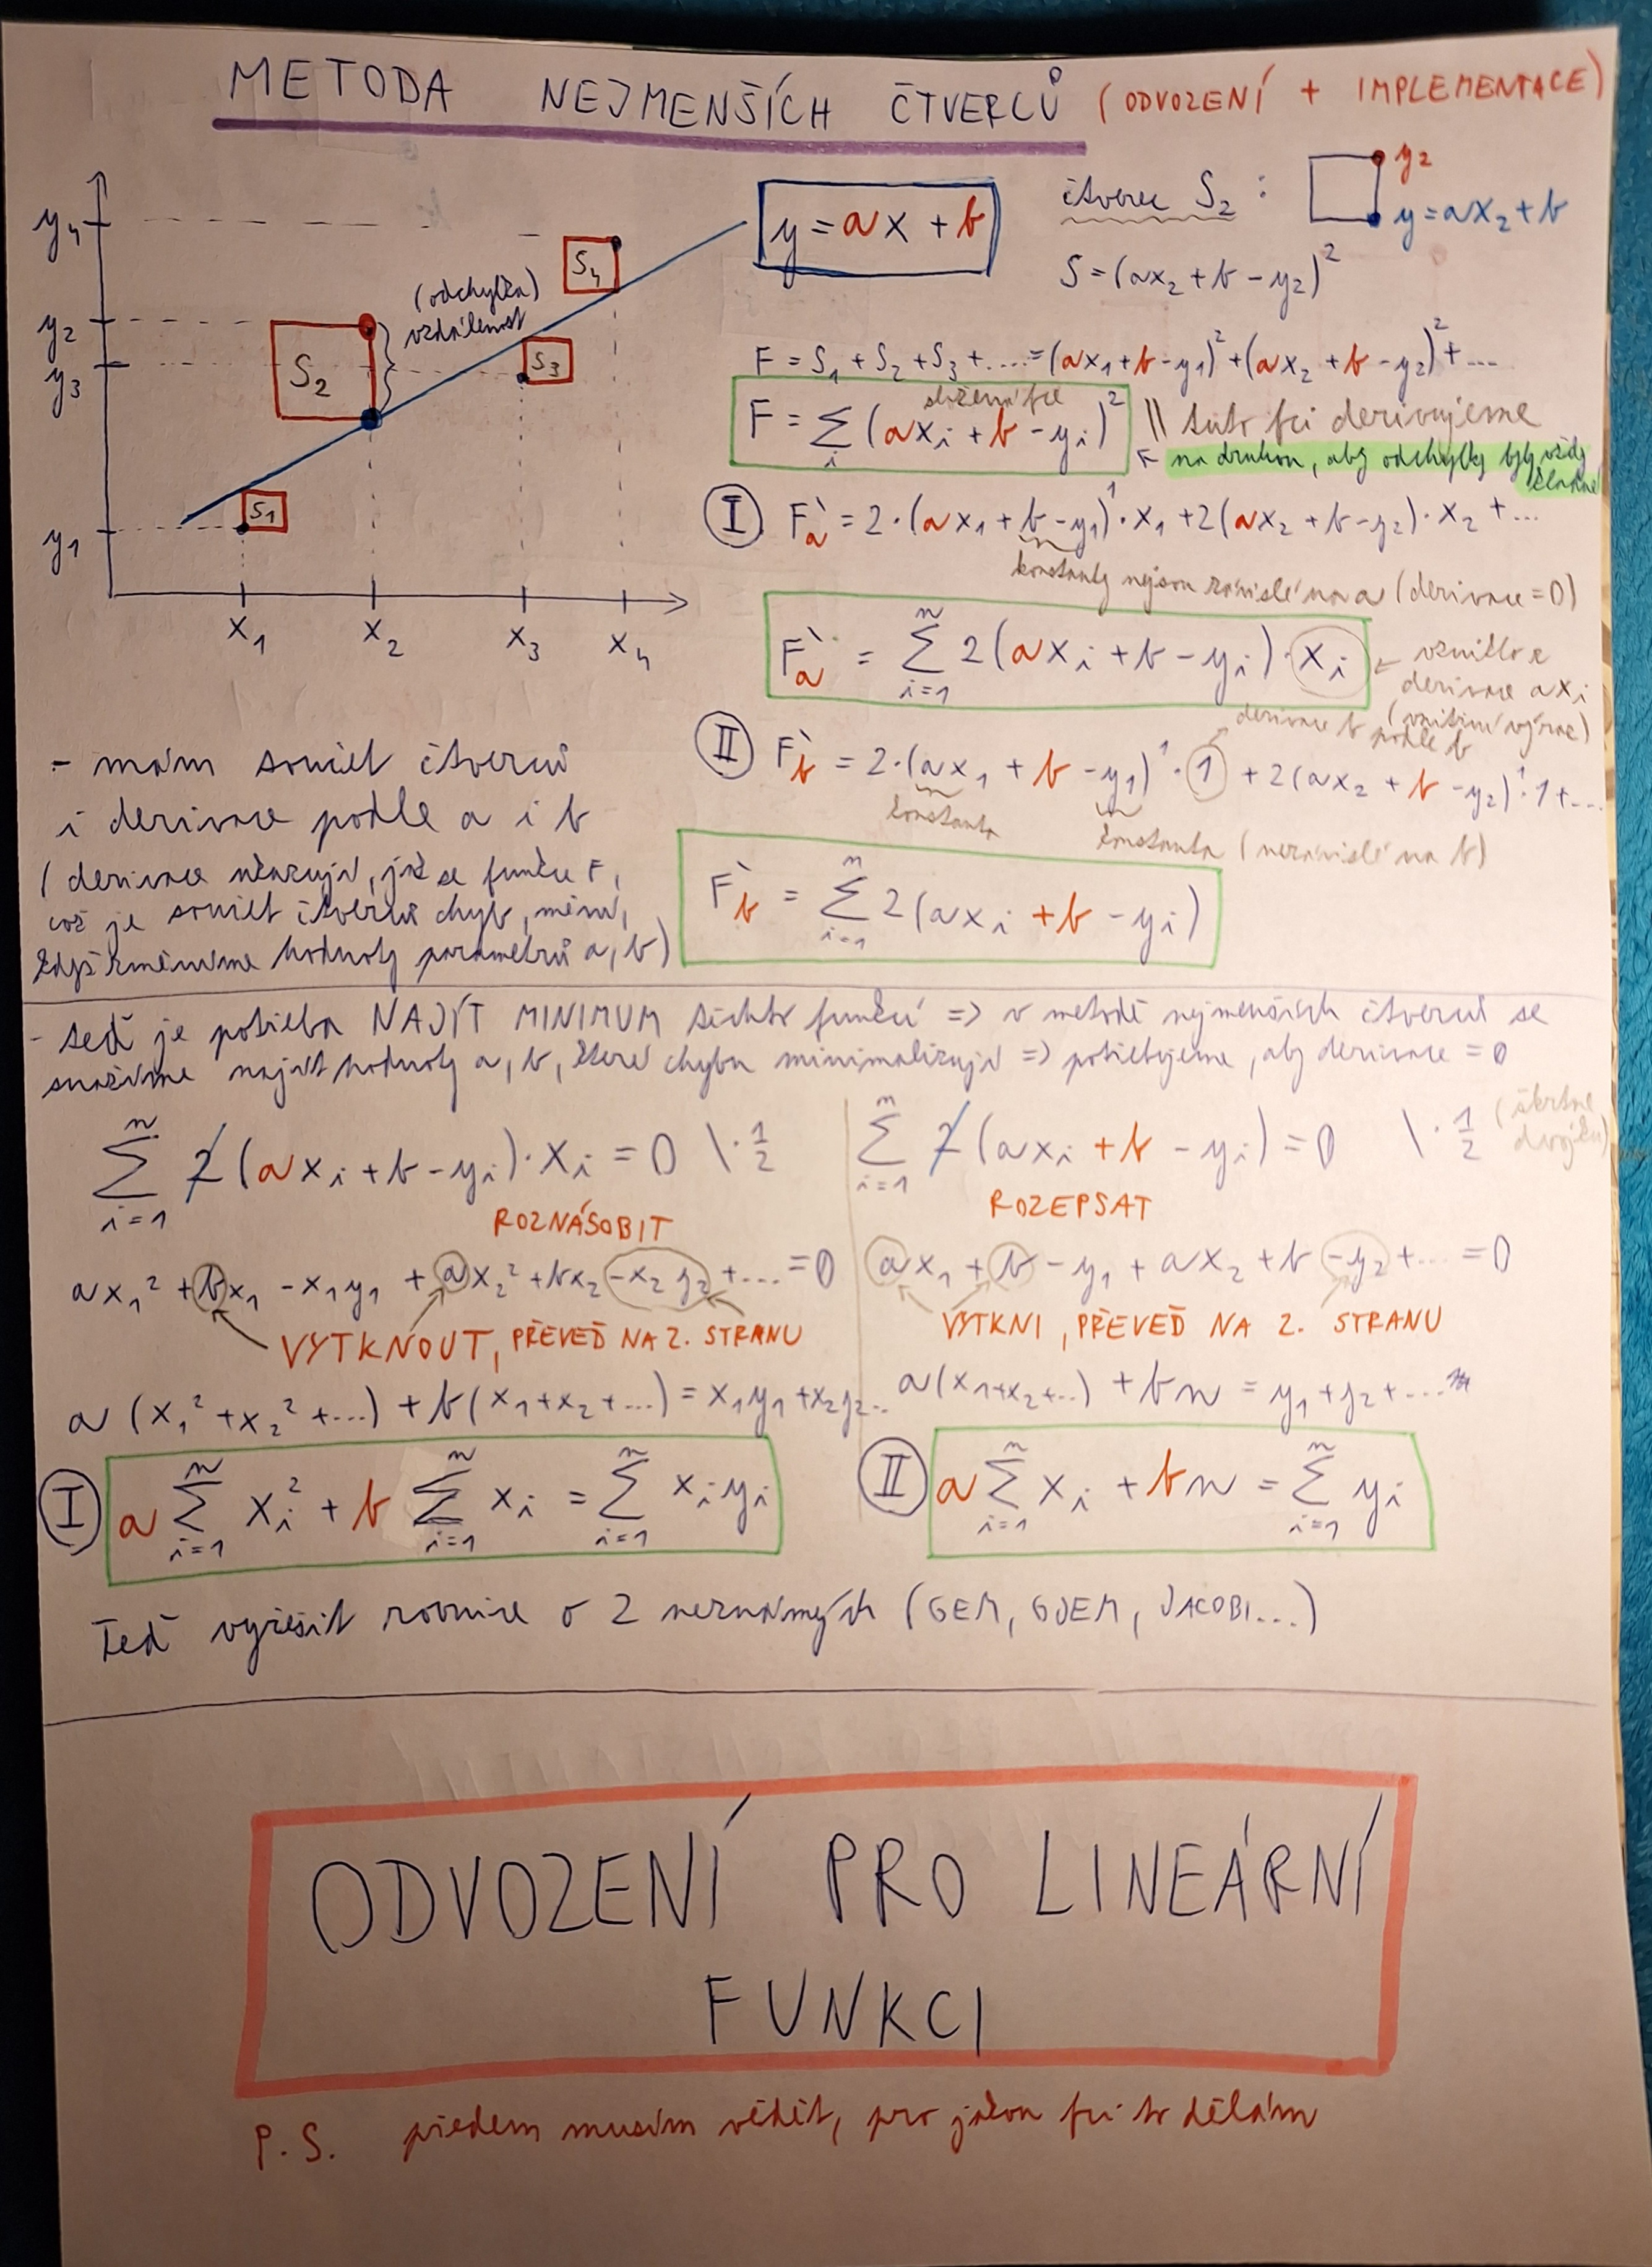 METODA NEJMENŠÍCH ČTVERCŮ (ODVOZENÍ + IMPLEMENTACE)
y4
y2
y3
y1
x1 x2 x3 x4
S1
S2
S3
S4
(odchylka)
vzdálenost
y = ax + b
čtverec S2 :
y2
y = ax2 + b
S = (ax2 + b - y2)²
F = S1 + S2 + S3 + .... = (ax1 + b - y1)² + (ax2 + b - y2)² + ...
složená fce
F = Σ_i (axi + b - yi)² || tuto fci derivujeme
← na druhou, aby odchylky byly vždy
kladné
I F'a = 2·(ax1 + b - y1)¹·x1 + 2(ax2 + b - y2)·x2 + ...
konstanty nejsou závislé na a (derivace = 0)
F'a = Σ_{i=1}^n 2(axi + b - yi)·xi ← vzniklo z
derivace axi
(vnitřní výraz)
derivace b podle b
II F'b = 2·(ax1 + b - y1)¹·1 + 2(ax2 + b - y2)¹·1 + ...
konstanta
konstanta (nezávislé na b)
F'b = Σ_{i=1}^n 2(axi + b - yi)
- mám součet čtverců
i derivace podle a i b
(derivace ukazují, jak se funkce F,
což je součet čtverců chyb, mění,
když změníme hodnoty parametrů a, b)
- teď je potřeba NAJÍT MINIMUM těchto funkcí => v metodě nejmenších čtverců se
snažíme najít hodnoty a, b, které chybu minimalizují => potřebujeme, aby derivace = 0
Σ_{i=1}^n 2(axi + b - yi)·xi = 0 \·1/2
ROZNÁSOBIT
ax1² + bx1 - x1y1 + ax2² + bx2 - x2y2 + .... = 0
VYTKNOUT, PŘEVEĎ NA 2. STRANU
a (x1² + x2² + ...) + b(x1 + x2 + ...) = x1y1 + x2y2..
I a Σ_{i=1}^n xi² + b Σ_{i=1}^n xi = Σ_{i=1}^n xiyi
Σ_{i=1}^n 2(axi + b - yi) = 0 \·1/2 (škrtne
dvojku)
ROZEPSAT
ax1 + b - y1 + ax2 + b - y2 + ... = 0
VYTKNI, PŘEVEĎ NA 2. STRANU
a(x1+x2+...) + bn = y1 + y2 + ....
II a Σ_{i=1}^n xi + bn = Σ_{i=1}^n yi
Teď vyřešit rovnice o 2 neznámých (GEM, GJEM, JACOBI...)
ODVOZENÍ PRO LINEÁRNÍ
FUNKCI
P.S. předem musím vědět, pro jakou fci to dělám